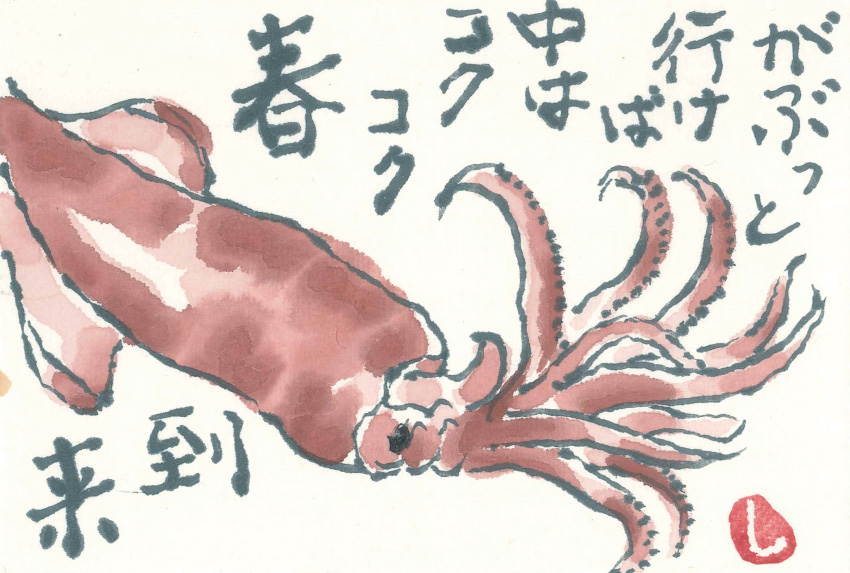 がぶっと
行けば
中は
コク
コク
春
到
来
し